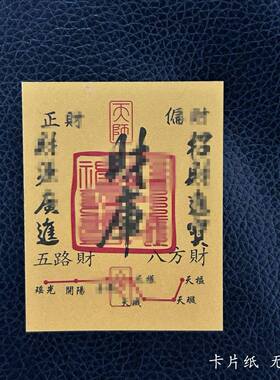 天師
正財
偏財
財源廣進
招財進寶
財庫
五路財
八方財
瑤光
開陽
天權
天樞
天璣
天璇
卡片纸